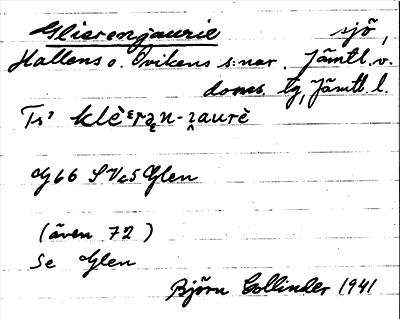 Glierenjaurie sjö,
Hallens o. Ovikens s:nar. Jämtl. v.
doms. tg, Jämtl. l.
Ts' klèᵋrə̯n-i̯aurè
G66 SVc5 Glen
(även 72)
Se Glen
Björn Collinder 1941